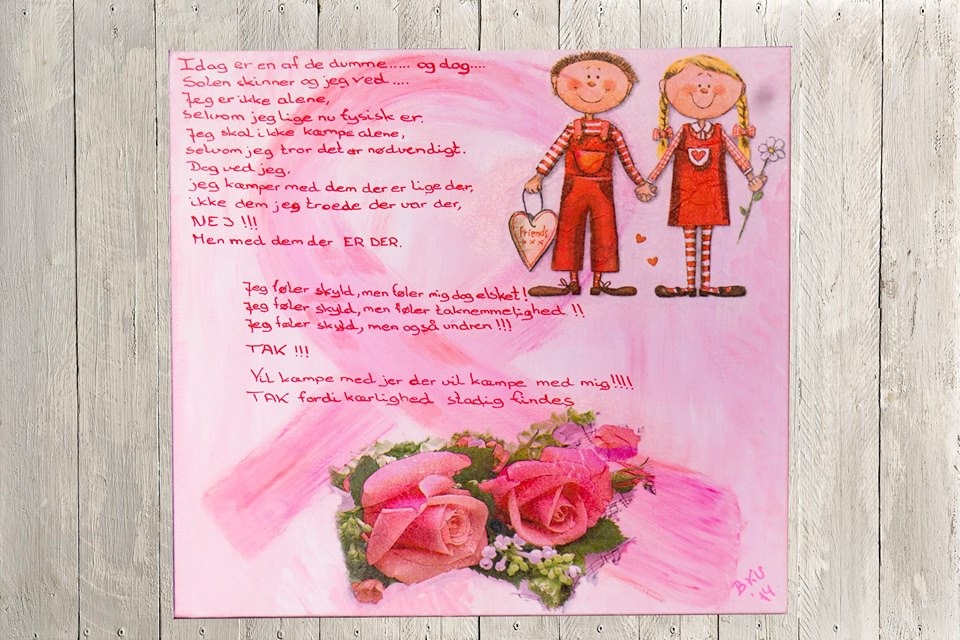 Idag er en af de dumme..... og dog....
Solen skinner og jeg ved....
Jeg er ikke alene,
selvom jeg lige nu fysisk er.
Jeg skal ikke kæmpe alene,
selvom jeg tror det er nødvendigt.
Dog ved jeg,
jeg kæmper med dem der er lige der,
ikke dem jeg troede der var der,
NEJ !!!
Men med dem der ER DER.
Friends
xxx
Jeg føler skyld, men føler mig dog elsket!
Jeg føler skyld, men føler taknemmelighed !!
Jeg føler skyld, men også undren !!!
TAK !!!
Vil kæmpe med jer der vil kæmpe med mig!!!!
TAK fordi kærlighed stadig findes
BKU
'14